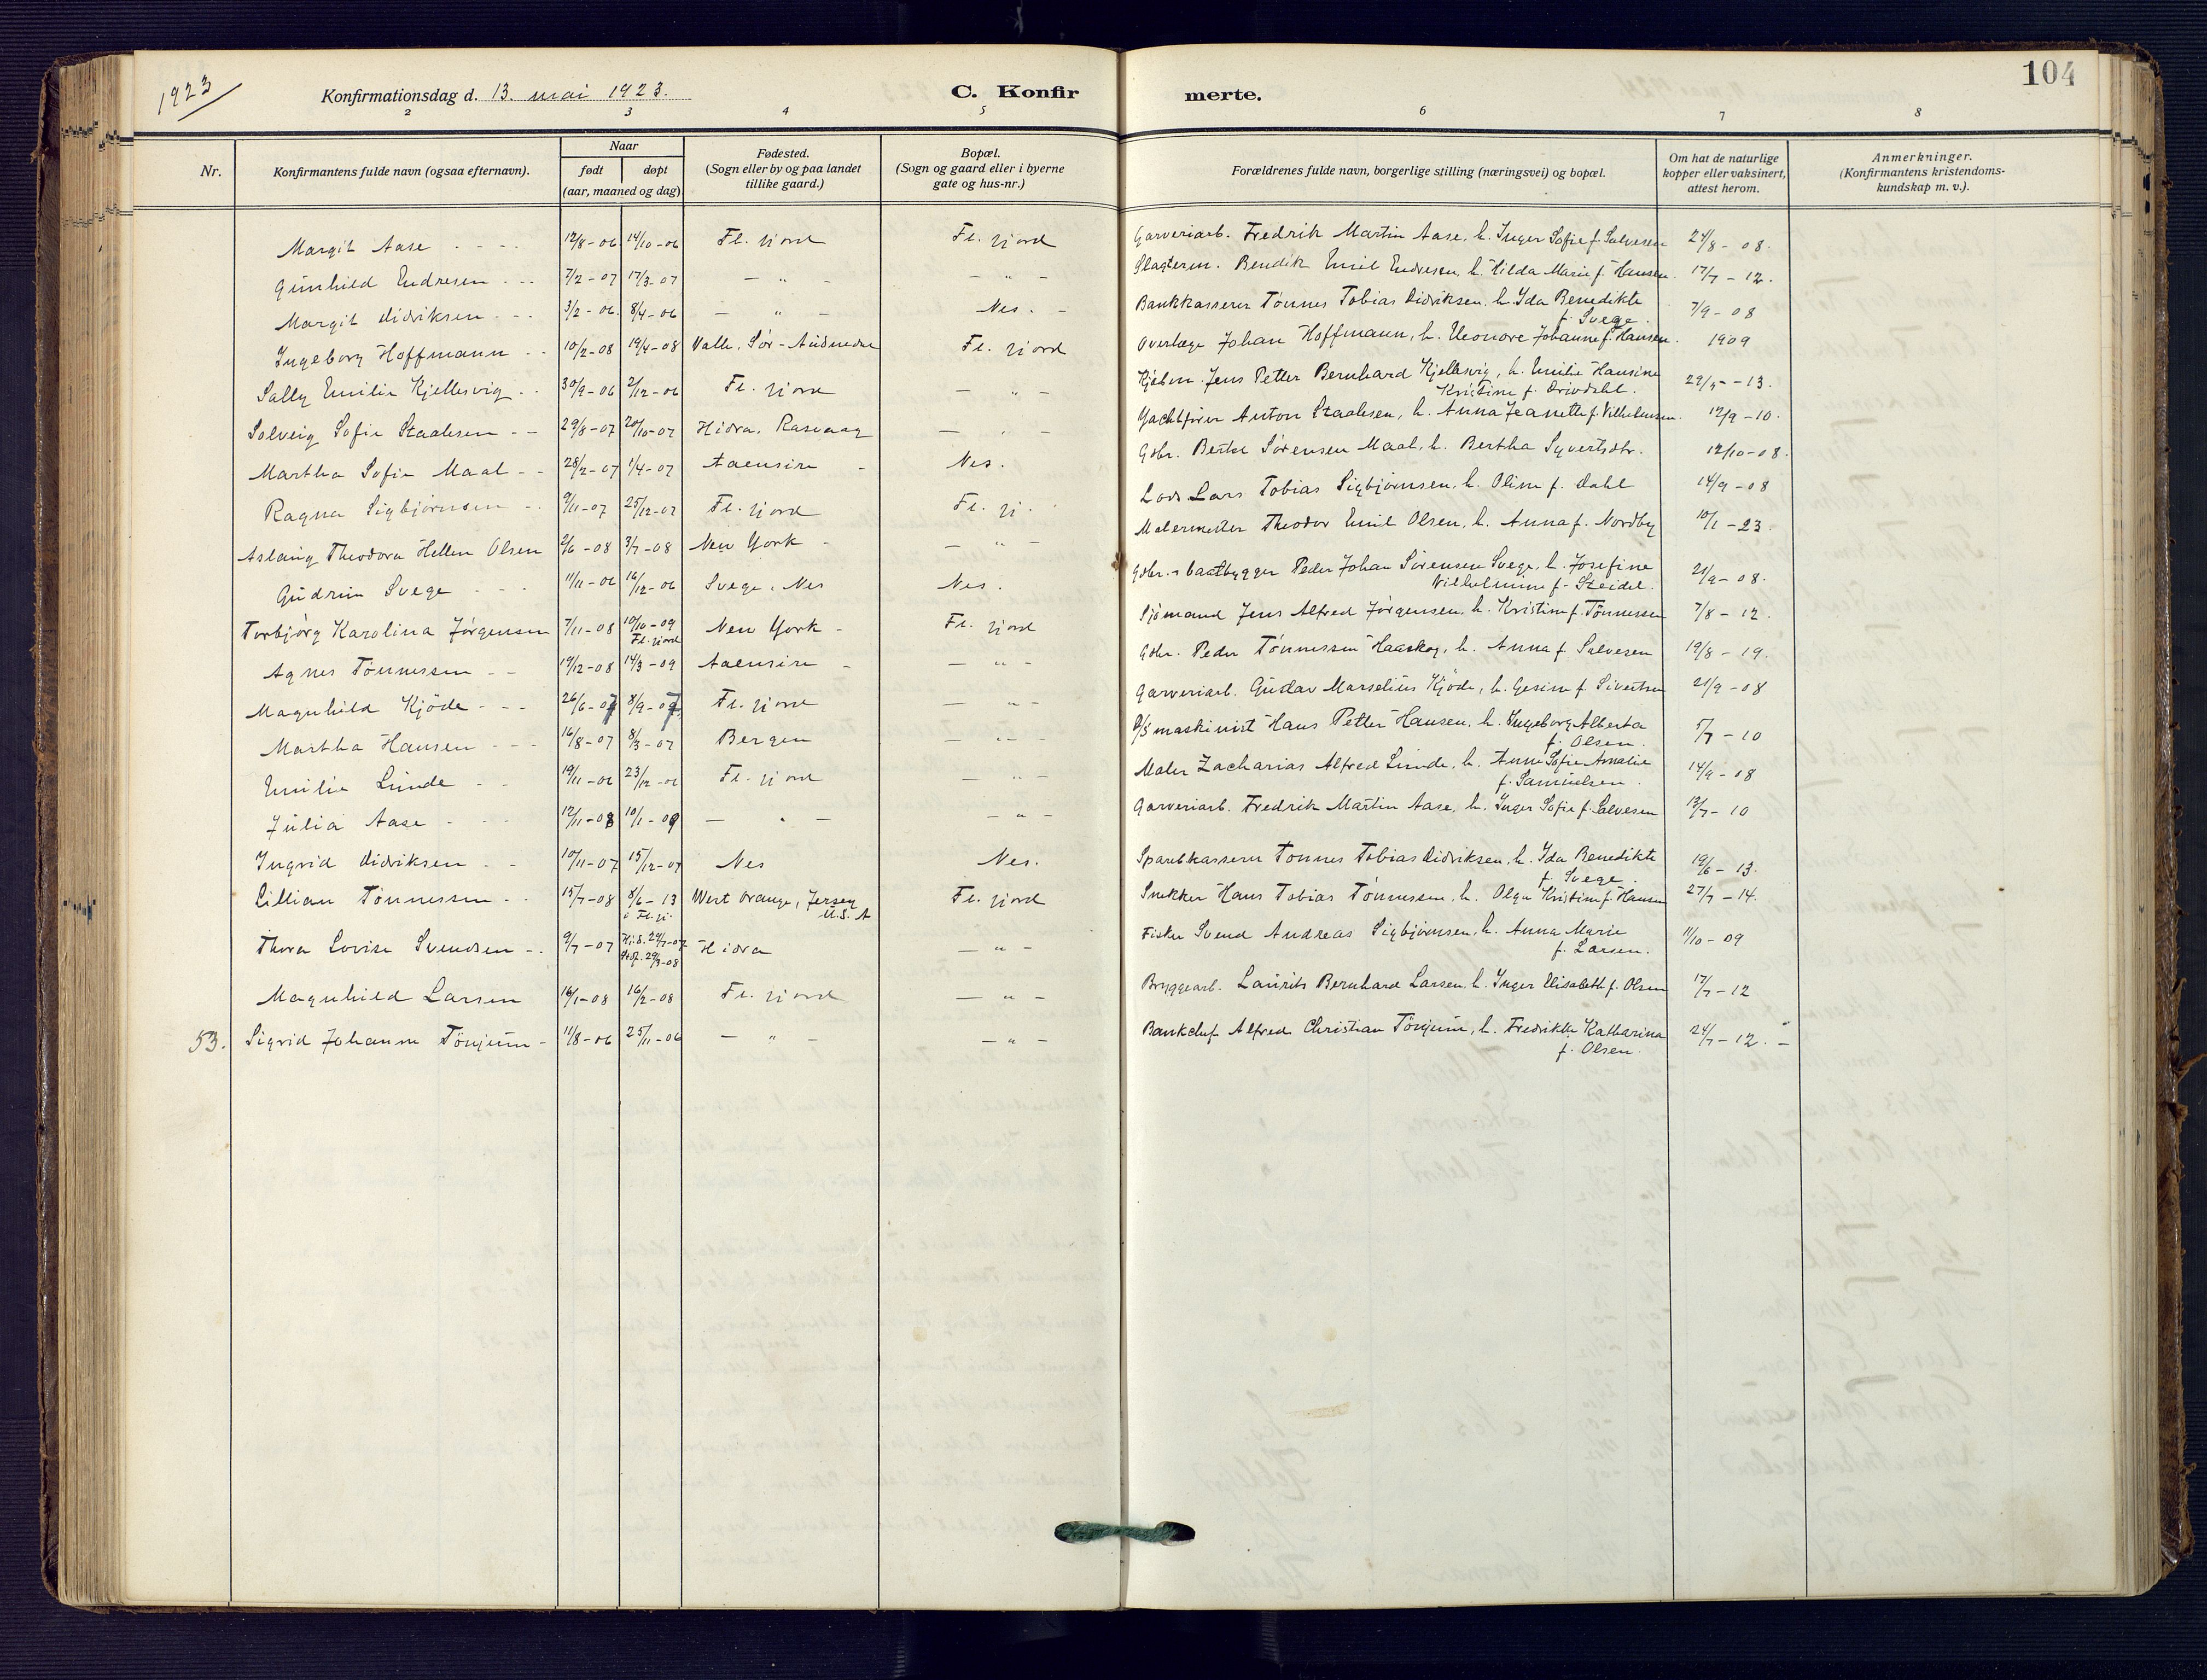 1923
Konfirmationsdag d. 13. mai 1923.
C. Konfir
merte.
104
2 3 4 5 6 7 8
Nr.
Konfirmantens fulde navn (ogsaa efternavn).
Naar
født
døpt
(aar, maaned og dag)
Fødested.
(Sogn eller by og paa landet
tillike gaard.)
Bopæl.
(Sogn og gaard eller i byerne
gate og hus-nr.)
Forældrenes fulde navn, borgerlige stilling (næringsvei) og bopæl.
Om hat de naturlige
kopper eller vaksinert,
attest herom.
Anmerkninger.
(Konfirmantens kristendoms-
kundskap m. v.).
Margit Aase 12/8-06 14/10-06 Fl. fjord Fl. fjord Garveriarb. Fredrik Martin Aase, h. Inger Sofie f. Salvesen 24/8-08.
Gunhild Endresen 7/2-07 17/3-07 — " — — " — Slagterm. Bendik Emil Endresen, h. Hilda Marie f. Hansen. 17/7-12.
Margit Didriksen 3/2-06. 8/4-06 — " — Nes. Bankkasserer Tønnes Tobias Didriksen, h. Ida Benedikte
f. Svege. 7/9-08
Ingeborg Hoffmann 10/2-08 19/4-08 Valle, Sør-Audnedal Fl. fjord Overlæge Johan Hoffmann, h. Leonore Johanne f. Hansen. 1909
Sally Emilie Kjellesvig 30/9-06 2/12-06 Fl. fjord — " — Kjøbm. Jens Petter Bernhard Kjellesvig, h. Emilie Hansine
Kristine f. Drivdahl. 29/5-13.
Solveig Sofie Staalesen 29/8-07 20/10-07 Hidra, Rasvaag — " — Yachtfører Anton Staalesen, h. Anna Jeanette f. Vilhelmsen. 12/9-10.
Martha Sofie Maal 28/2-07 1/4-07 Aaensire Nes. Gdbr. Bertel Sørensen Maal, h. Bertha Syvertsdtr. 12/10-08.
Ragna Sigbjørnsen 9/11-07 25/12-07 Fl. fjord Fl. fj. Lods Lars Tobias Sigbjørnsen, h. Oline f. Dahl 14/9-08
Aslaug Theodora Hellen Olsen 2/6-08 3/7-08 New York — " — Malermester Theodor Emil Olsen, h. Anna f. Nordby 10/1-23.
Gudrun Svege 11/11-06 16/12-06 Svege, Nes Nes. Gdbr. & baatbygger Peder Johan Sørensen Svege, h. Josefine
Vilhelmine f. Steidel. 21/9-08.
Torbjørg Karolina Jørgensen 7/11-08 10/10-09
Fl. fjord New York Fl. fjord Sjømand Jens Alfred Jørgensen, h. Kristine f. Tønnessen 7/8-12.
Agnes Tønnessen 19/12-08 14/3-09 Aaensire — " — Gdbr. Peder Tønnessen Haaskog, h. Anna f. Salvesen 19/8-19.
Magnhild Kjøde 26/6-07 8/9-07 Fl. fjord — " — Garveriarb. Gustav Marselius Kjøde, h. Gesine f. Sivertsen 21/9-08
Martha Hansen 16/8-07 8/3-07 Bergen — " — D/S maskinist Hans Petter Hansen, h. Ingeborg Alberta
f. Olsen. 5/7-10
Emilie Linde 19/11-06 23/12-06 Fl. fjord — " — Maler Zacharias Alfred Linde, h. Anne Sofie Amalie
f. Samuelsen. 14/9-08
Julia Aase 12/11-08 10/1-09 — " — — " — Garveriarb. Fredrik Martin Aase, h. Inger Sofie f. Salvesen 13/7-10
Ingrid Didriksen 10/11-07 15/12-07 Nes Nes. Sparebkasserer Tønnes Tobias Didriksen, h. Ida Benedikte
f. Svege. 19/6-13.
Lillian Tønnessen 15/7-08 8/6-13
i Fl. fj. West Orange, Jersey
U.S.A Fl. fjord Snekker Hans Tobias Tønnessen, h. Olga Kristine f. Hansen 27/7-14.
Thora Lovise Svendsen 9/7-07 Hj.d. 24/7-07
29/3-08 Hidra — " — Fisker Svend Andreas Sigbjørnsen, h. Anna Marie
f. Larsen. 11/10-09
Magnhild Larsen 16/1-08 16/2-08 Fl. fjord — " — Bryggearb. Laurits Bernhard Larsen, h. Inger Elisabeth f. Olsen 17/7-12
53. Sigrid Johanne Tönjum 11/8-06 25/11-06 — " — — " — Bankchef Alfred Christian Tönjum, h. Fredrikke Katharina
f. Olsen. 24/7-12.